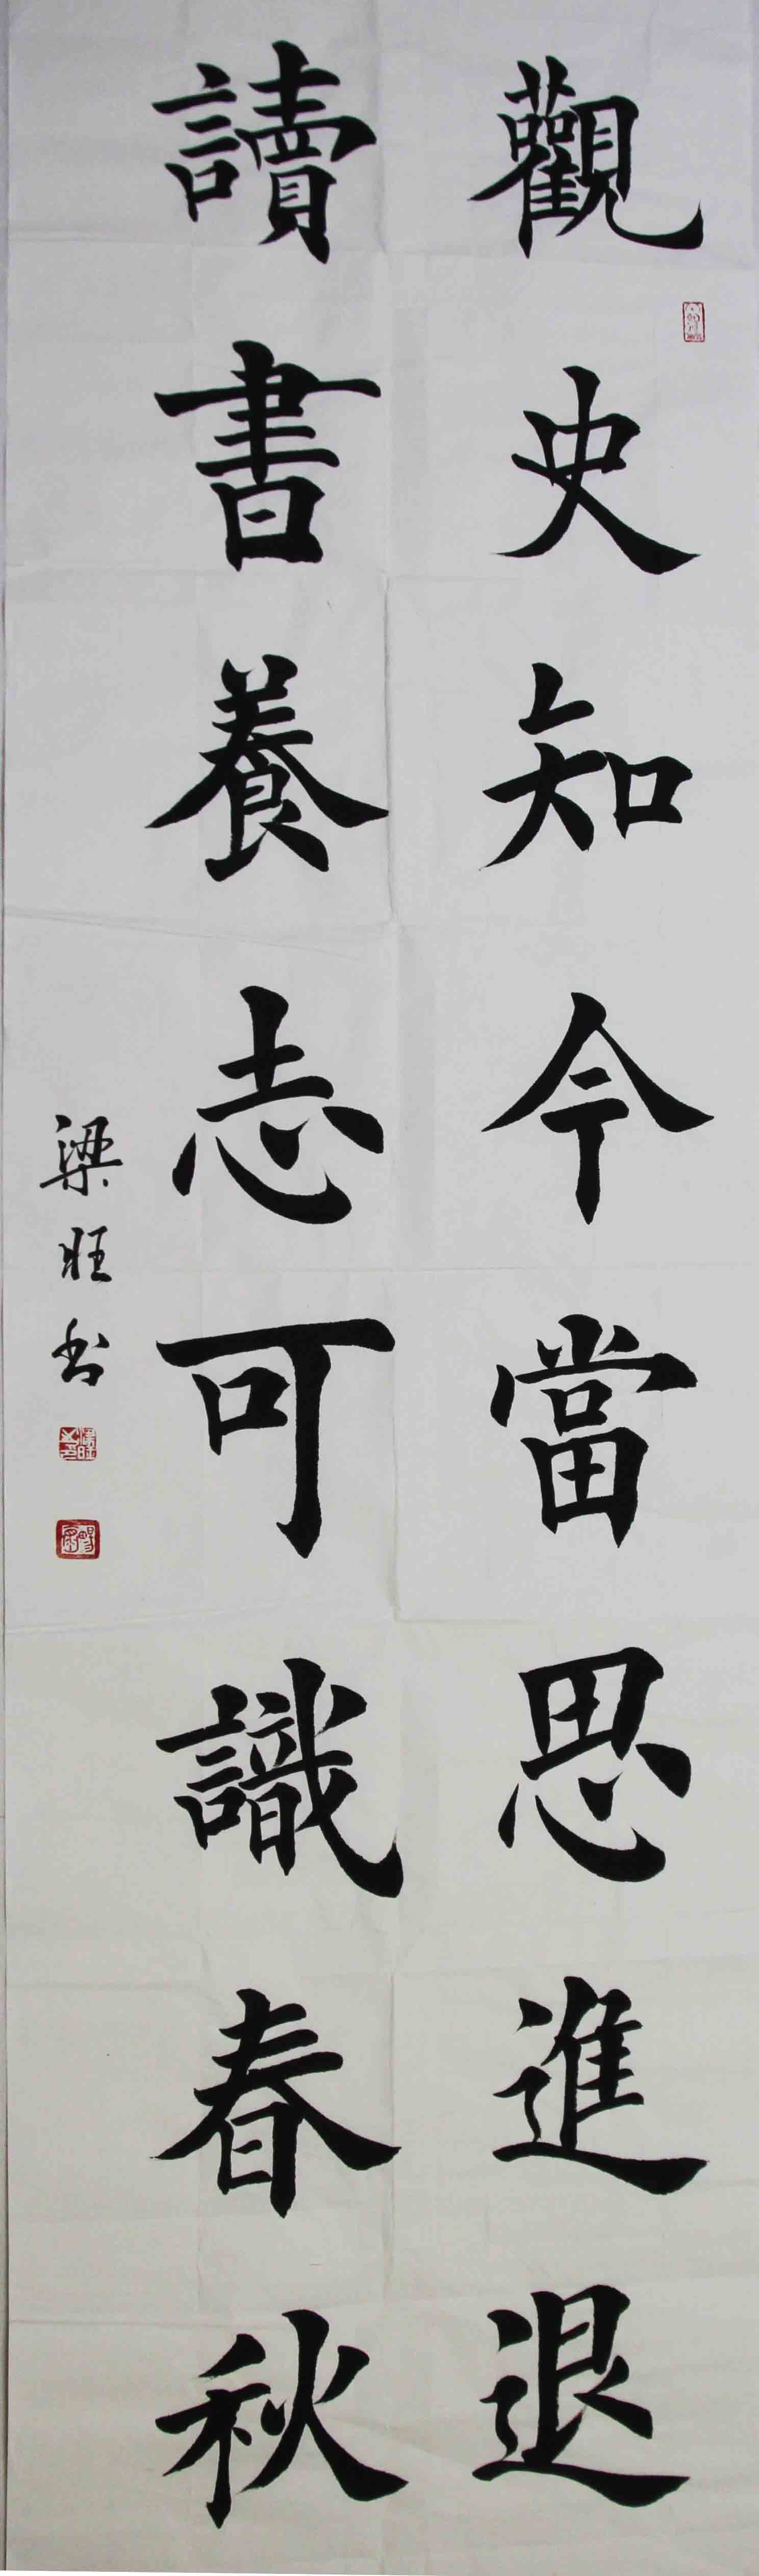 觀史知今當思進退
讀書養志可識春秋
梁旺书